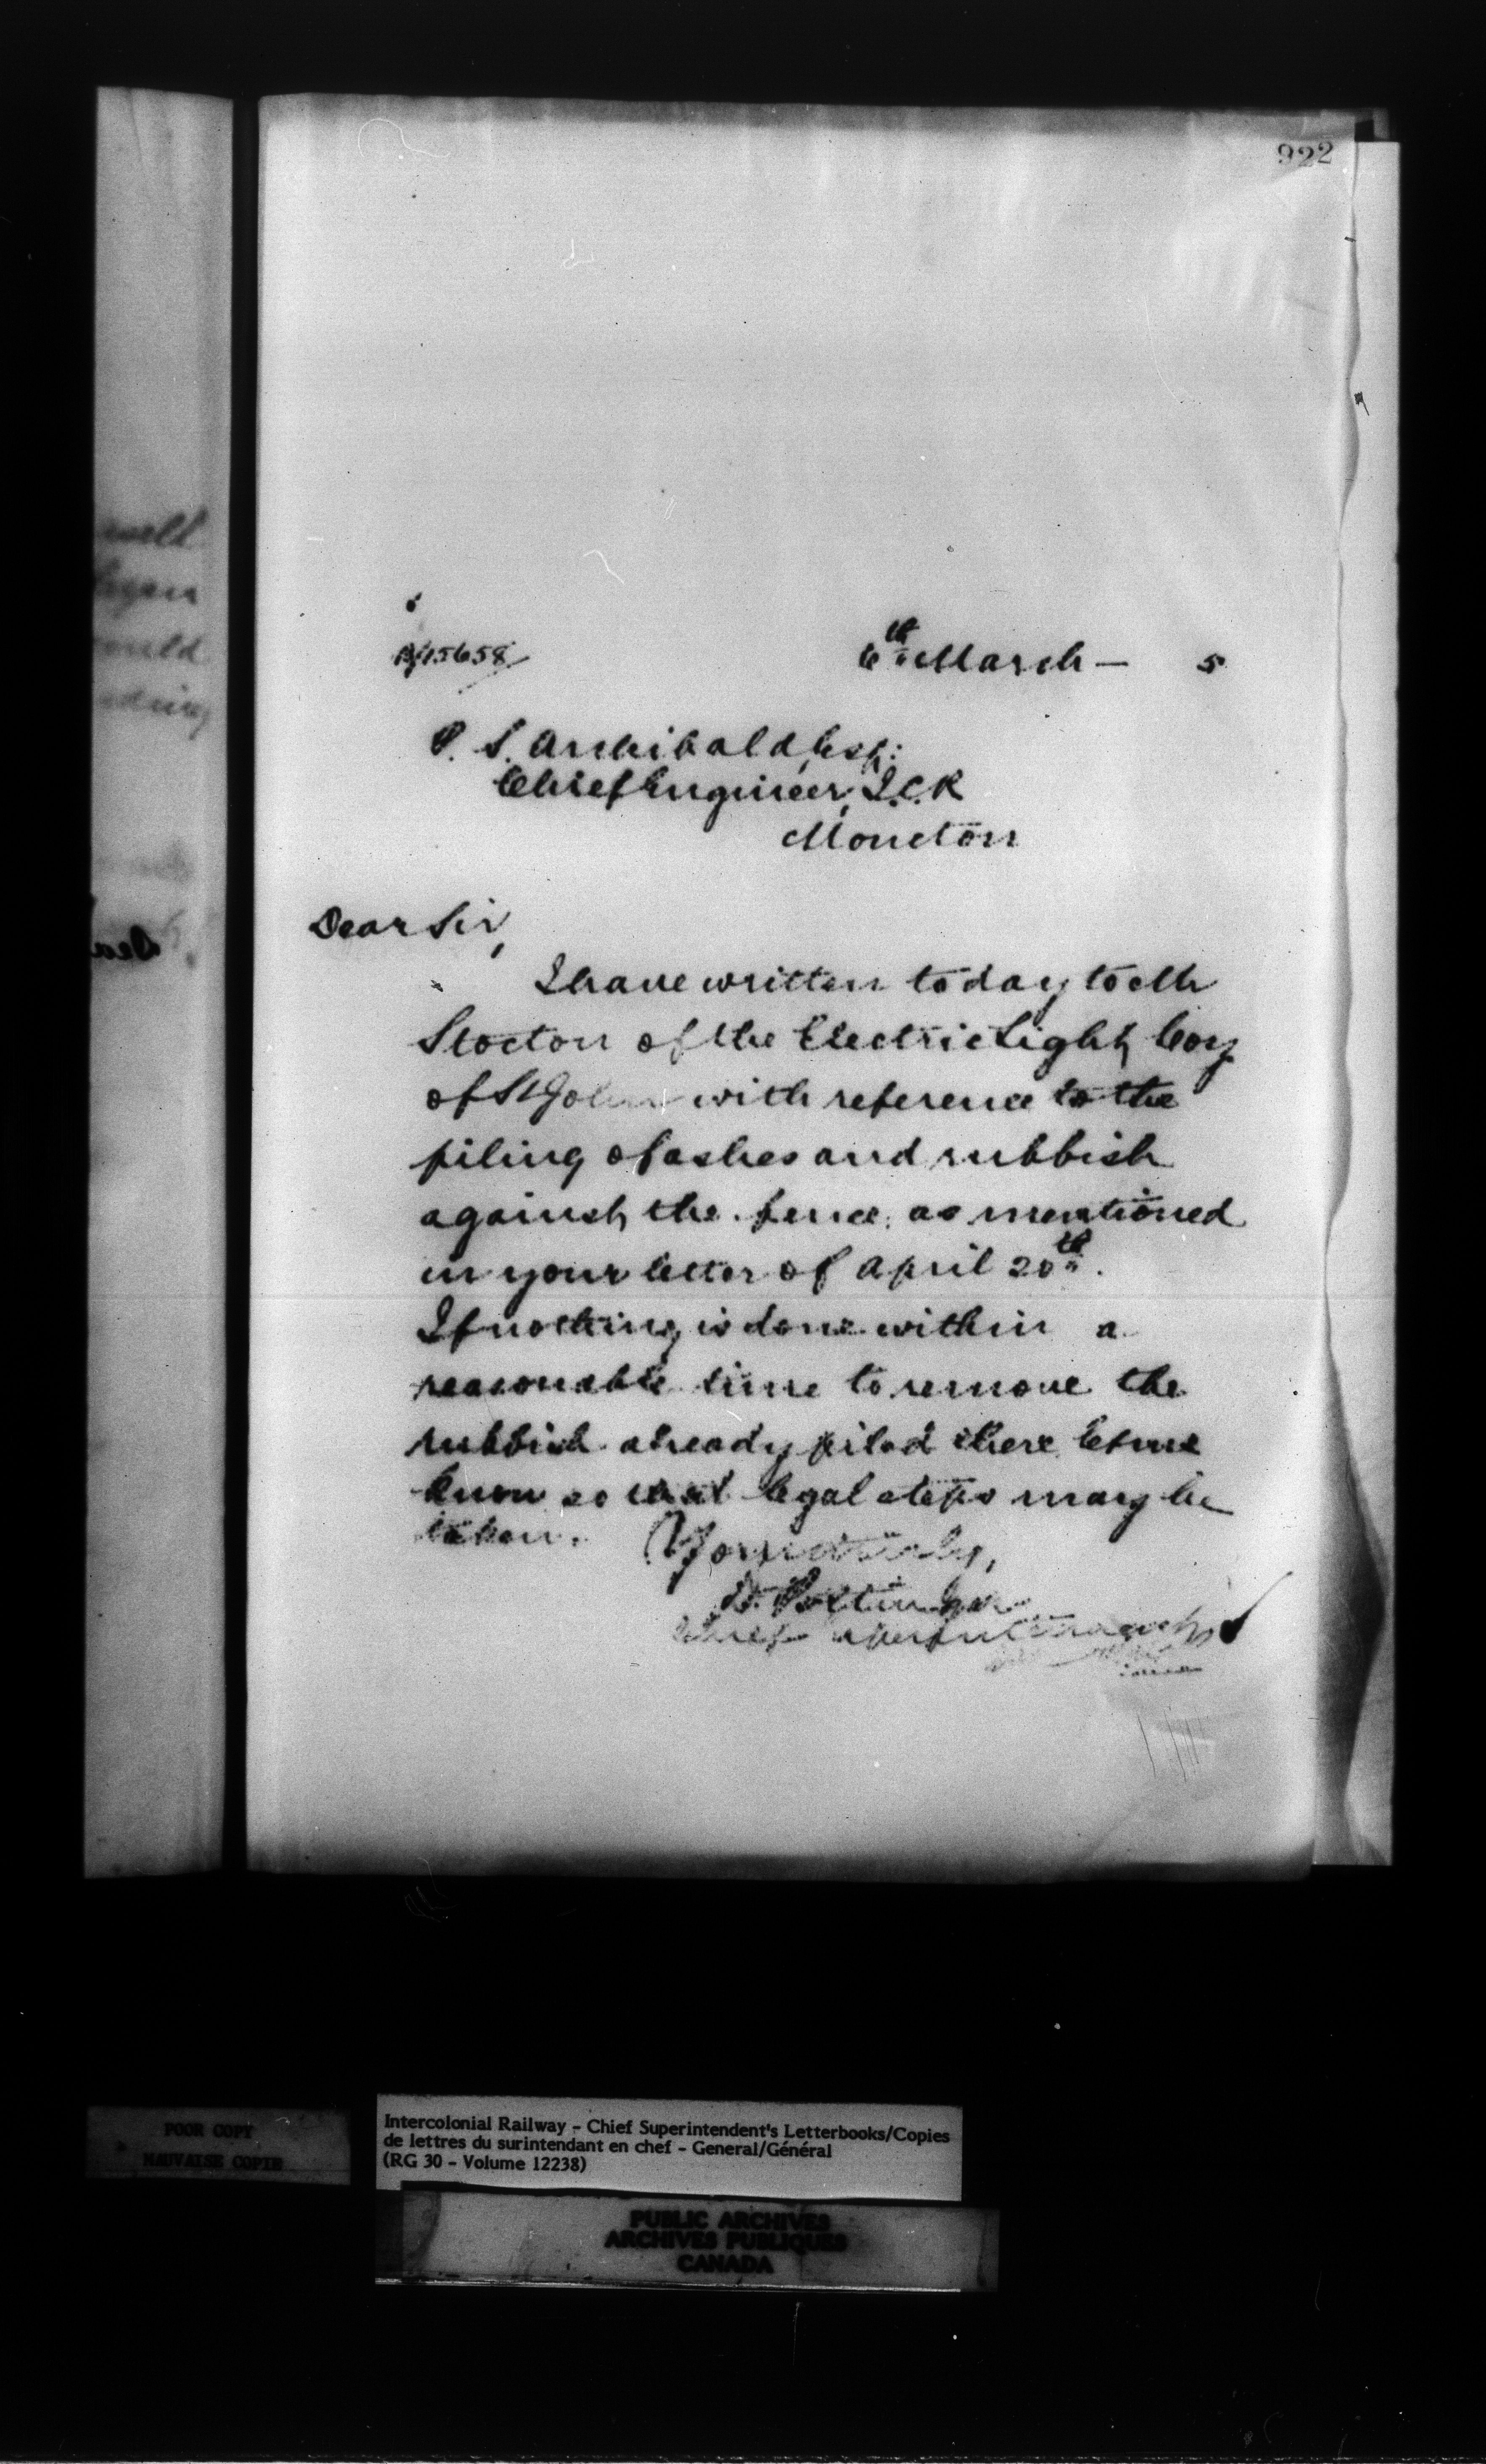 922
15658
6th March — 5
P. S. Archibald, Esq:
Chief Engineer, I.C.R
Moncton
Dear Sir,
I have written today to Mr
Stocton of the Electric Light Coy
of St John with reference to the
piling of ashes and rubbish
against the fence, as mentioned
in your letter of April 20th.
If nothing is done within a
reasonable time to remove the
rubbish already piled there let me
know so that legal steps may be
taken.
Yours truly,
D. Pottinger
Chief Superintendent
well
would
Dea
POOR COPY
MAUVAISE COPIE
Intercolonial Railway – Chief Superintendent's Letterbooks/Copies
de lettres du surintendant en chef – General/Général
(RG 30 – Volume 12238)
PUBLIC ARCHIVES
ARCHIVES PUBLIQUES
CANADA